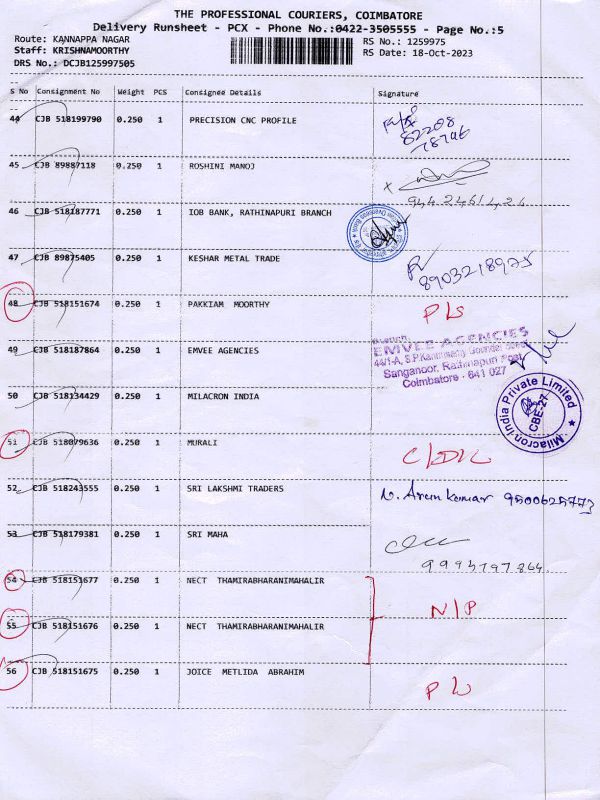 THE PROFESSIONAL COURIERS, COIMBATORE
Delivery Runsheet - PCX - Phone No.:0422-3505555 - Page No.:5
Route: KANNAPPA NAGAR
Staff: KRISHNAMOORTHY
DRS No.: DCJB125997505
RS No.: 1259975
RS Date: 18-Oct-2023
S No Consignment No Weight PCS Consignee Details Signature
44 CJB 518199790 0.250 1 PRECISION CNC PROFILE
82208
78746
45 CJB 89887118 0.250 1 ROSHINI MANOJ
46 CJB 518187771 0.250 1 IOB BANK, RATHINAPURI BRANCH
47 CJB 89875405 0.250 1 KESHAR METAL TRADE
8903218975
48 CJB 518151674 0.250 1 PAKKIAM MOORTHY
49 CJB 518187864 0.250 1 EMVEE AGENCIES
EMVEE AGENCIES
Sanganoor, Rathinapuri Post,
Coimbatore - 641 027
50 CJB 518134429 0.250 1 MILACRON INDIA
Milacron India Private Limited
CBE-27
51 CJB 518079636 0.250 1 MURALI
52 CJB 518243555 0.250 1 SRI LAKSHMI TRADERS
N. Arun kumar 9500625773
53 CJB 518179381 0.250 1 SRI MAHA
54 CJB 518151677 0.250 1 NECT THAMIRABHARANIMAHALIR
N/P
55 CJB 518151676 0.250 1 NECT THAMIRABHARANIMAHALIR
56 CJB 518151675 0.250 1 JOICE METLIDA ABRAHIM